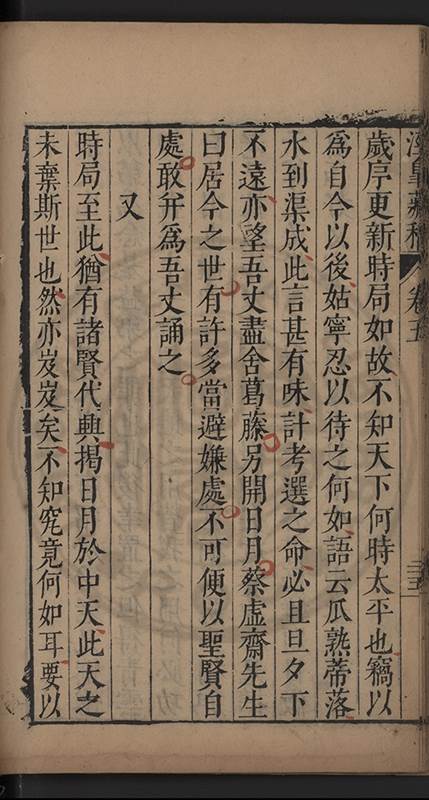 涇皐藏稿 卷五
歲序更新時局如故不知天下何時太平也竊以
爲自今以後姑寧忍以待之何如語云瓜熟蒂落
水到渠成此言甚有味計考選之命必且旦夕下
不遠亦望吾丈盡舍葛藤另開日月蔡虛齋先生
曰居今之世有許多當避嫌處不可便以聖賢自
處敢幷爲吾丈誦之
又
時局至此猶有諸賢代興揭日月於中天此天之
未棄斯世也然亦岌岌矣不知究竟何如耳要以